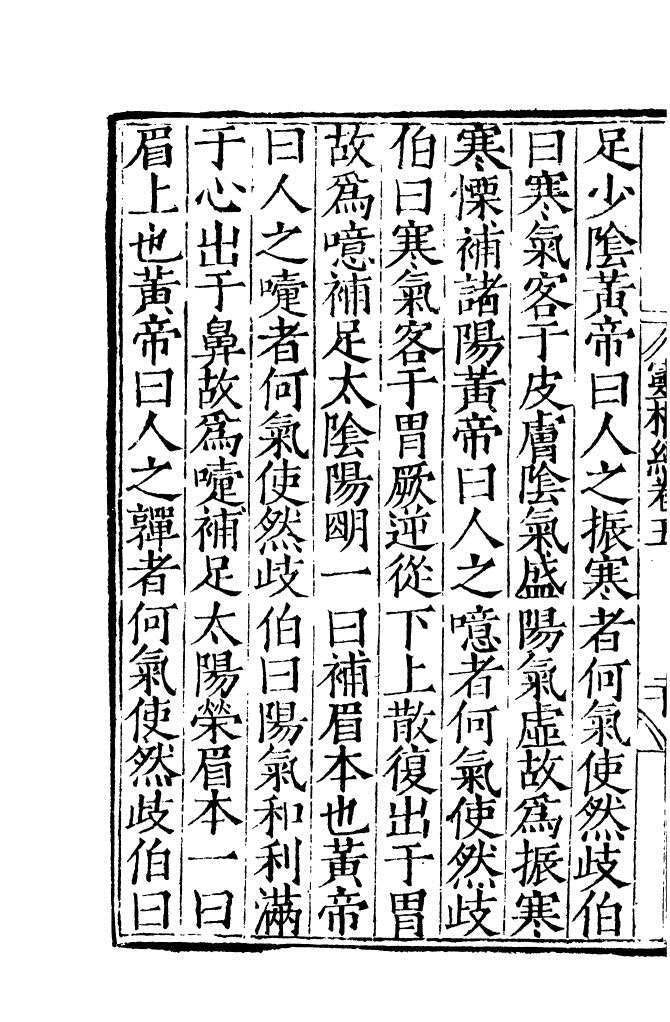 靈樞經卷五
足少陰黃帝曰人之振寒者何氣使然歧伯
曰寒氣客于皮膚陰氣盛陽氣虛故爲振寒
寒慄補諸陽黃帝曰人之噫者何氣使然歧
伯曰寒氣客于胃厥逆從下上散復出于胃
故爲噫補足太陰陽明一曰補眉本也黃帝
曰人之嚏者何氣使然歧伯曰陽氣和利滿
于心出于鼻故爲嚏補足太陽榮眉本一曰
眉上也黃帝曰人之嚲者何氣使然歧伯曰